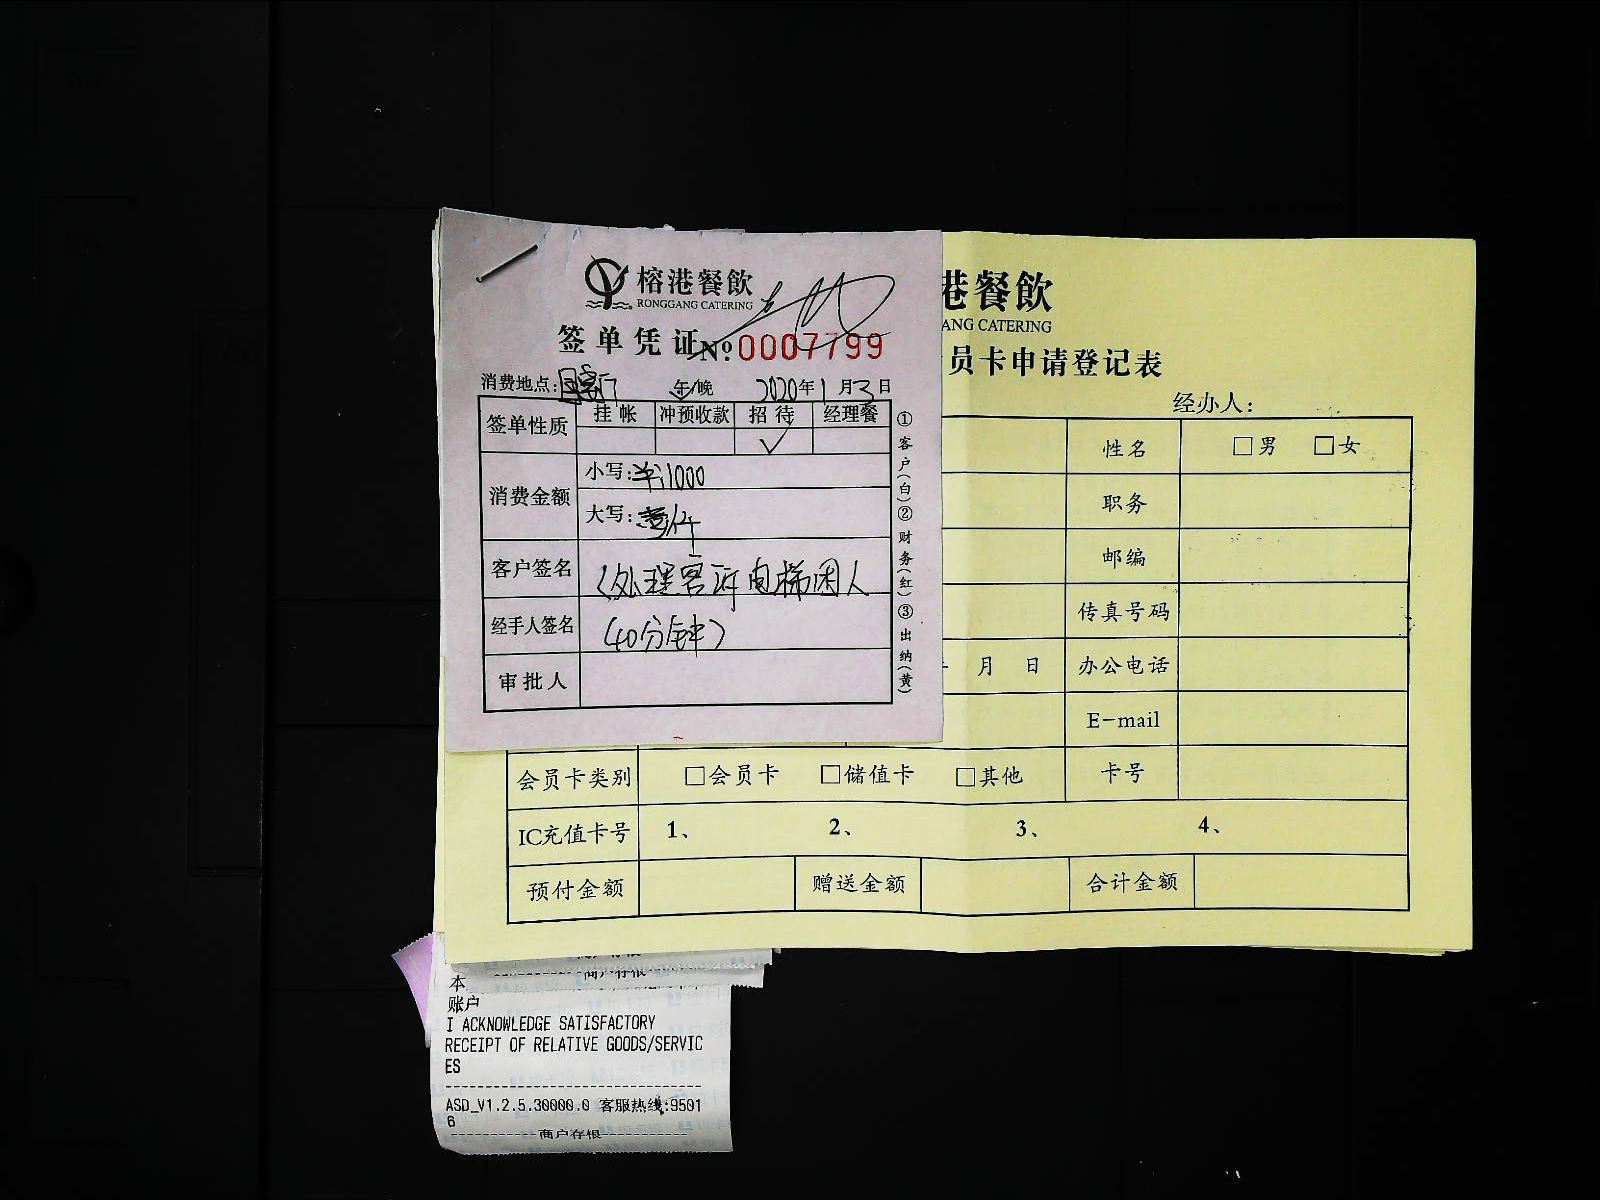 榕港餐飲
RONGGANG CATERING
签单凭证 №0007799
消费地点: 午/晚 2020年1月3日
签单性质 挂帐 冲预收款 招待 经理餐
✓
消费金额 小写:¥:1000
大写:壹仟
客户签名 (处理客诉电梯困人
经手人签名 (40分钟)
审批人
①客户(白)②财务(红)③出纳(黄)
港餐飲
ANG CATERING
员卡申请登记表
经办人:
性名 □男 □女
职务
邮编
传真号码
月 日 办公电话
E-mail
会员卡类别 □会员卡 □储值卡 □其他 卡号
IC充值卡号 1、 2、 3、 4、
预付金额 赠送金额 合计金额
商户存根
本
账户
I ACKNOWLEDGE SATISFACTORY
RECEIPT OF RELATIVE GOODS/SERVIC
ES
ASD_V1.2.5.30000.0 客服热线:9501
6
商户存根